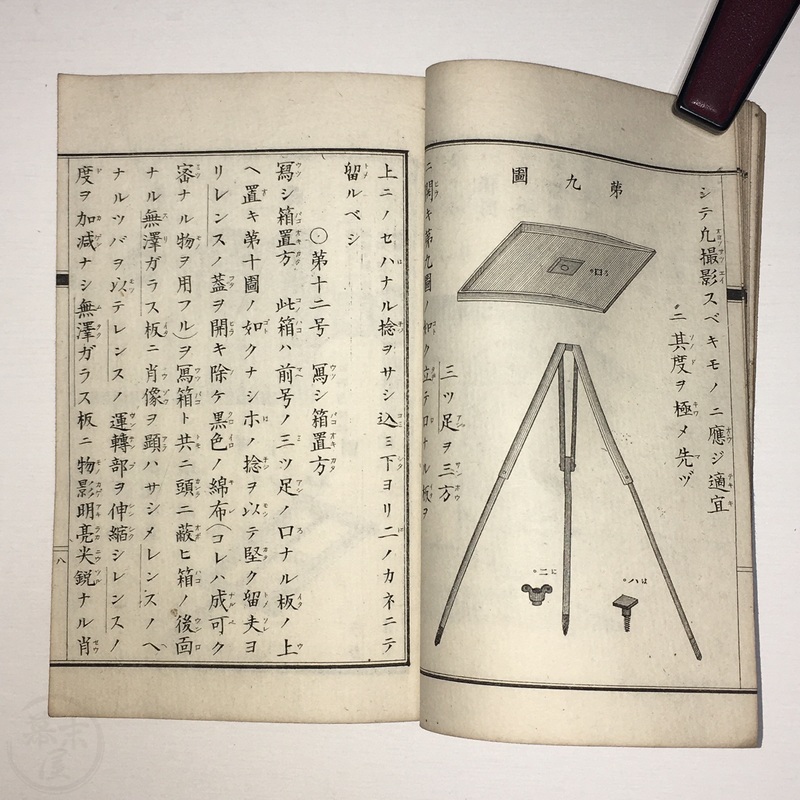 シテ凡撮影スベキモノニ應ジ適宜
ニ其度ヲ極メ先ヅ
第九圖
ろロ
はハ
にニ
三ツ足ヲ三方
ニ開キ第九圖ノ如ク立テロナル板ヲ
上ニノセハナル捻ヲサシ込ミ下ヨリニノカネニテ
留ルベシ
〇第十二号 寫シ箱置方
寫シ箱置方 此箱ハ前号ノ三ツ足ノロナル板ノ上
ヘ置キ第十圖ノ如クナシホノ捻ヲ以テ堅ク留夫ヨ
リレンスノ蓋ヲ開キ除ケ黒色ノ綿布(コレハ成可ク
密ナル物ヲ用フル)ヲ寫箱ト共ニ頭ニ蔽ヒ箱ノ後面
ナル無澤ガラス板ニ肖像ヲ顕ハサシメレンスノヘ
ナルツバヲ以テレンスノ運轉部ヲ伸縮シレンスノ
度ヲ加减ナシ無澤ガラス板ニ物影明亮尖鋭ナル肖
八